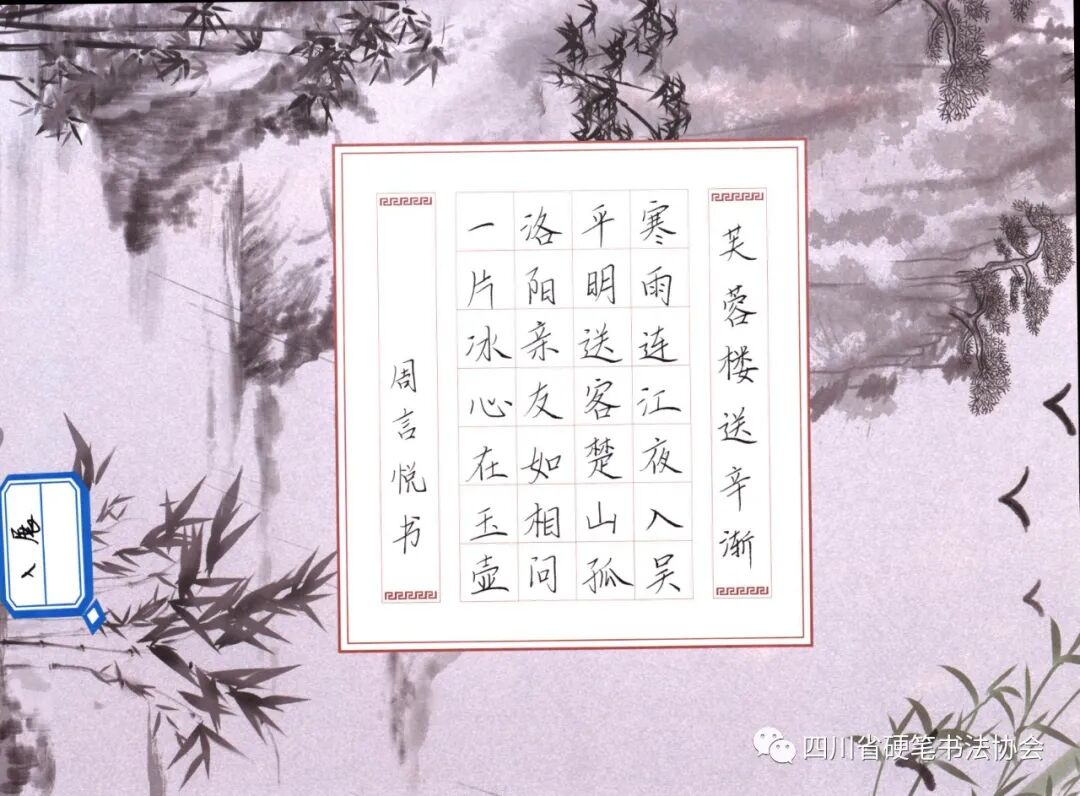 芙蓉楼送辛渐
寒雨连江夜入吴
平明送客楚山孤
洛阳亲友如相问
一片冰心在玉壶
周言悦书
入展
四川省硬笔书法协会